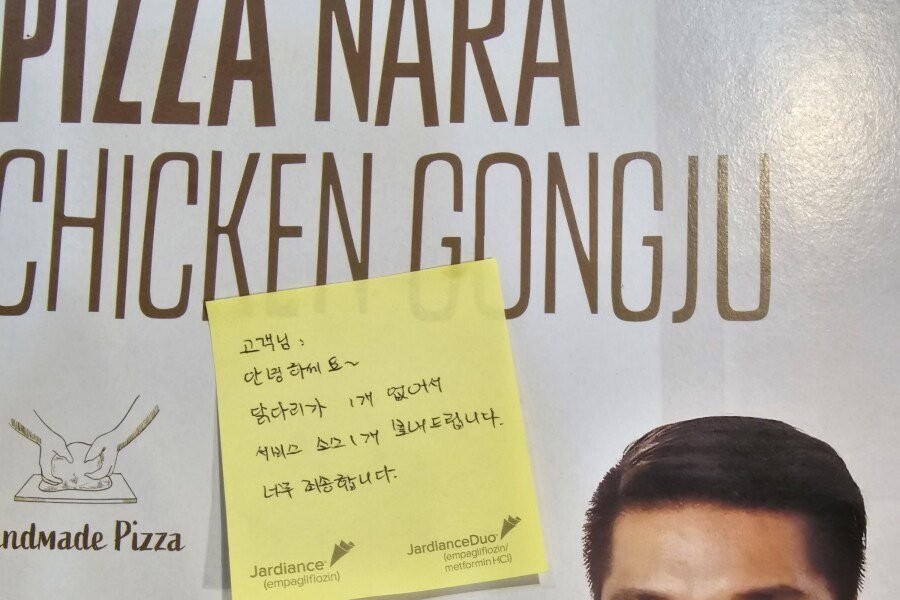 PIZZA NARA
CHICKEN GONGJU
고객님 :
안녕하세요~
닭다리가 1개 없어서
서비스 소스1개 보내드립니다.
너무 죄송합니다.
ndmade Pizza
Jardiance
(empagliflozin)
JardianceDuo
(empagliflozin/
metformin HCl)